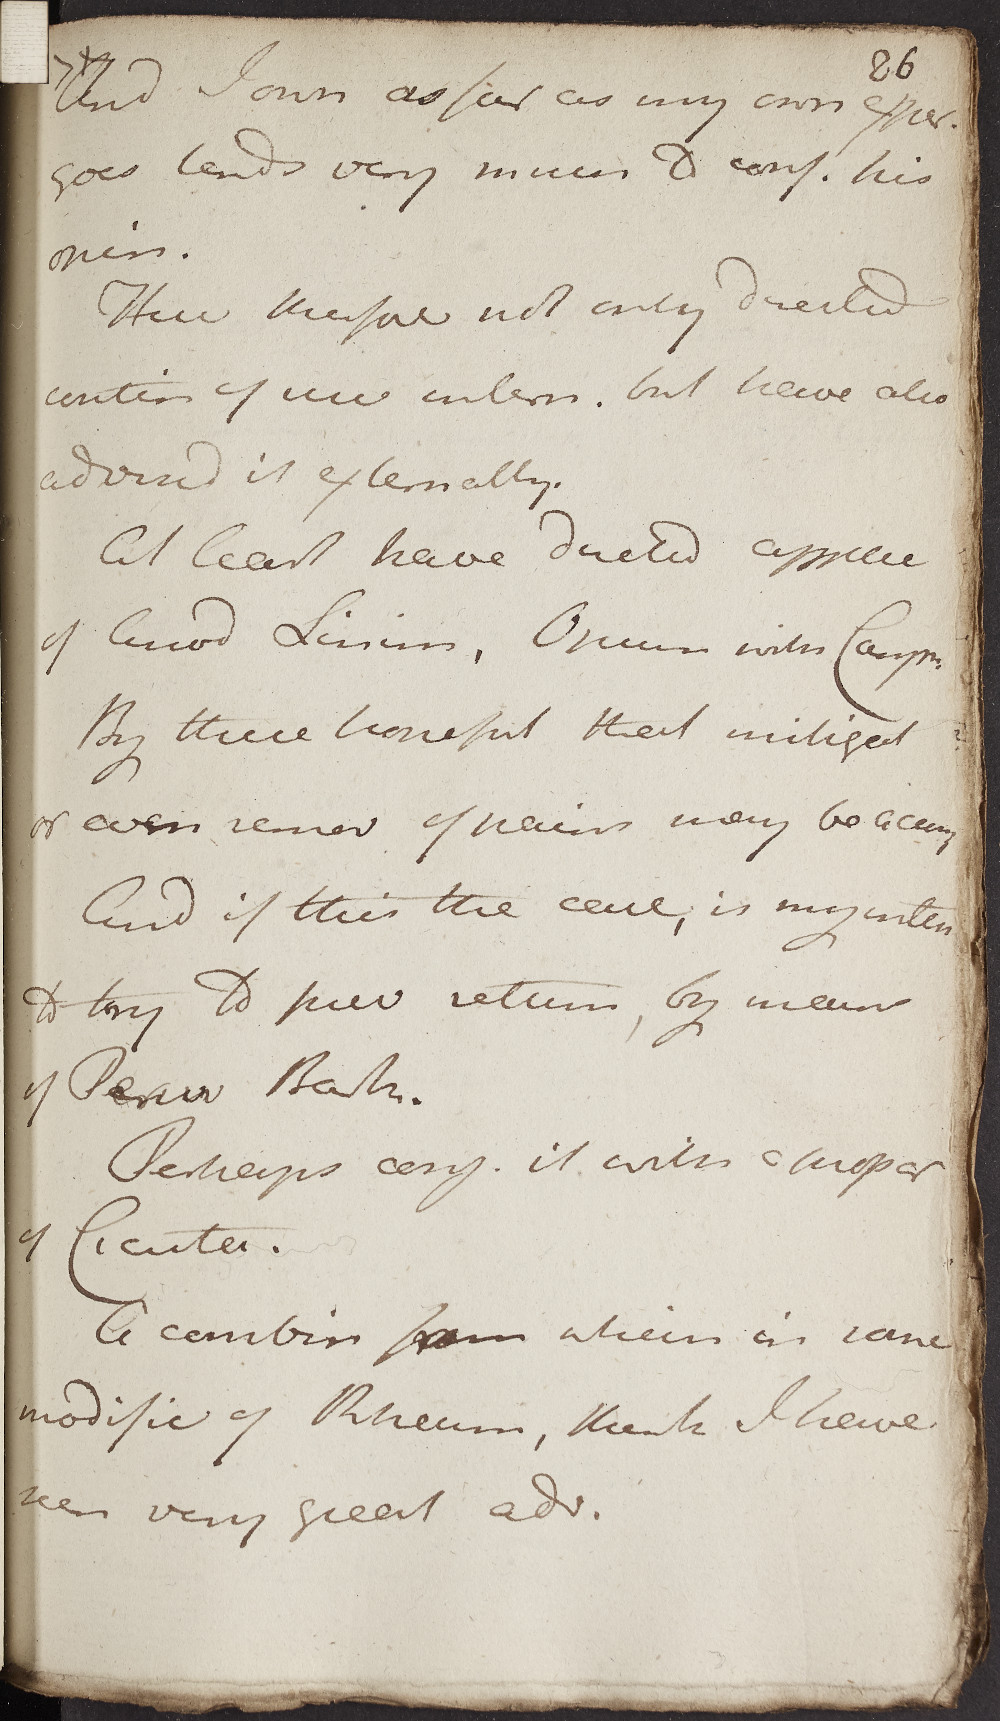 86
And I own as far as my own exper.
goes tends very much to conf. his
opin.
Have therefore not only directed
contin of use intern. but have also
advised it externally.
At least have directed applic
of Anod Linim, Opium with Camph.
By these hopeful that mitigat
or even remov of pains may be accomp
And if this the case, is my inten
to try to prev return, by means
of Peruv Bark.
Perhaps conj. it with a propor
of Cicuta.
A combin from which in some
modific of Rheum, think I have
seen very great adv.